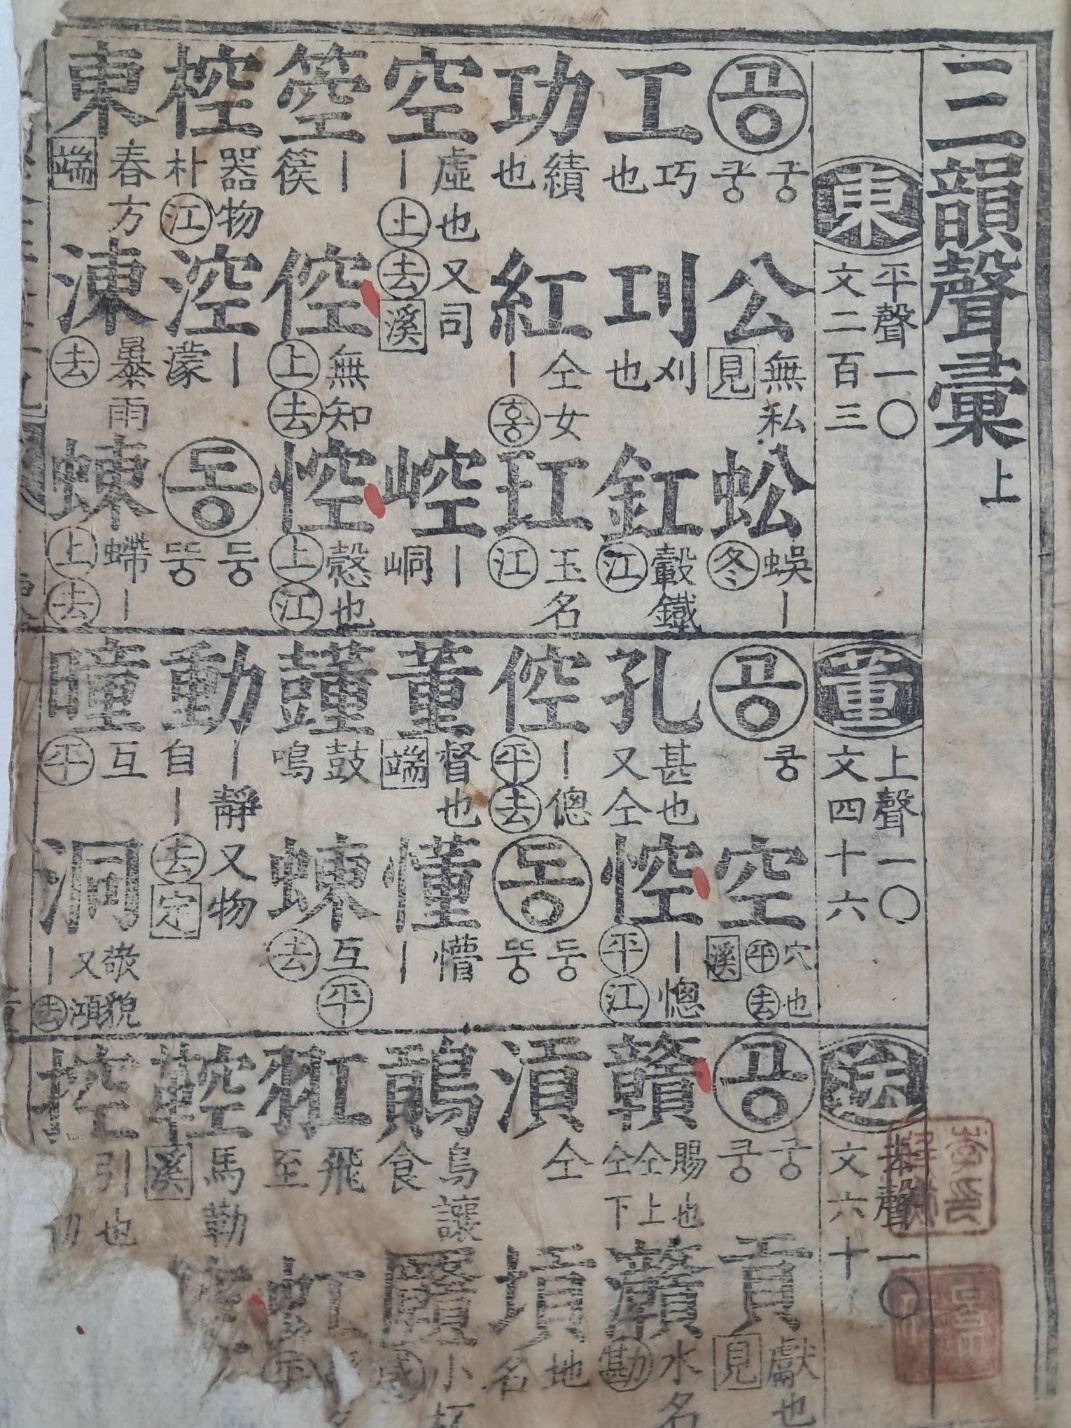 三韻聲彙上
東 平聲一〇 文二百三
공 궁 쿵 公 無私 見 蚣 蜈丨 冬
工 巧也 刏 刈也 釭 轂鐵 江
功 績也 紅 丨 仝女 홍 玒 玉名 江
空 虛也又司 丨 上 去 溪 崆 丨峒
箜 丨篌 倥 無知 上 去 悾 慤也 上 江
椌 器物 朴 江 涳 丨濛 동 둥 뚱
東 春方 端 凍 暴雨 去 蝀 螮丨 上 去
董 上聲一〇 文四十六
공 쿵 空 穴也 平 去 溪
孔 甚也又仝 悾 丨憁 平 江
倥 丨傯 平 去 동 둥 뚱
董 督也 端 懂 丨懵
鼓鳴 蝀 互平 去
動 丨靜又物自丨 去 定
曈 互 平 洞 丨 又澒 去
送 聲一〇 文六十
공 궁 쿵 貢 獻也 見
贛 賜也 仝上 仝下 灨 水名 勘
湏 仝 塡 地名
鵑 鳥讓食 小杯 感
羾 飛至 虹
鞚 馬勒 溪
控 引也